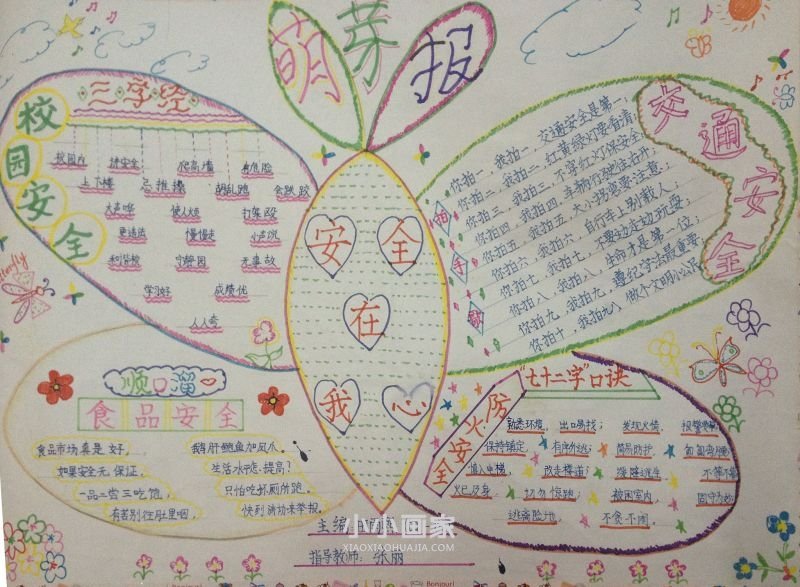 萌芽报
校园安全
三字经
校园内 讲安全 爬高墙 有危险
上下楼 忌推搡 胡乱跑 会跌跤
大声哗 使人烦 打架殴
更违法 慢慢走 小声说
利学校 宁静园 无事故
学习好 成绩优
人人夸
交通安全
拍手歌
你拍一，我拍一，交通安全是第一；
你拍二，我拍二，红黄绿灯要看清；
你拍三，我拍三，不穿红灯保安全；
你拍四，我拍四，车辆行驶往右开；
你拍五，我拍五，大小拐弯要注意；
你拍六，我拍六，自行车上别载人；
你拍七，我拍七，不要边走边玩耍；
你拍八，我拍八，生命才是第一位；
你拍九，我拍九，遵纪守法最重要；
你拍十，我拍十，做个文明小公民
安全在我心
Butterfly
顺口溜
食品安全
食品市场真是好，
鹅肝鲍鱼加凤爪。
如果安全无保证，
生活水平虑提高？
一品二尝三吃饱，
只怕吃坏厕所跑。
有苦别往肚里咽，
快到消协来举报。
"七十二字"口诀
防火安全
熟悉环境，出口易找；发现火情，报警
保持镇定，有序外逃；简易防护，匍匐弯腰
慎入电梯，改走楼道；缓降逃生，不等不靠
火已及身，切勿惊跑；被困室内，固守为妙
远离险地，不贪不闹。
主编
指导教师：张丽
小小画家
XIAOXIAOHUAJIA.COM
Bonjour!